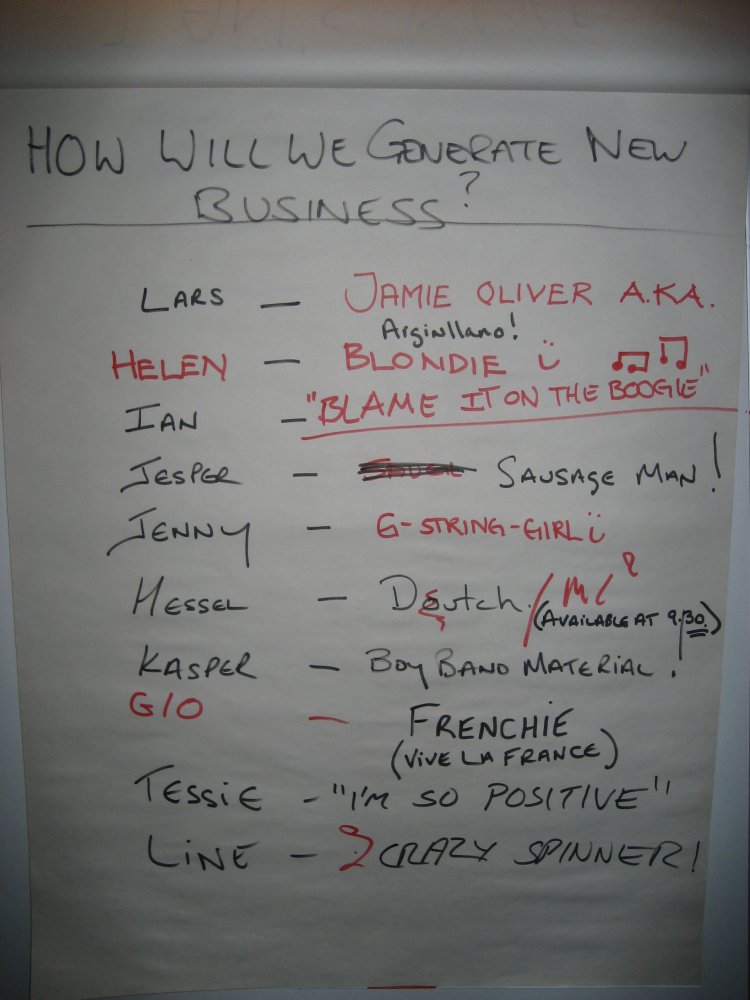 HOW WILL WE GENERATE NEW
BUSINESS?
LARS — JAMIE OLIVER A.K.A.
Arginllano!
HELEN — BLONDIE ü ♫ ♫
IAN — "BLAME IT ON THE BOOGIE"
JESPER — SAUSAGE MAN!
JENNY — G-STRING-GIRL ü
HESSEL — /
(AVAILABLE AT 9.30)
KASPER — BOY BAND MATERIAL!
GIO — FRENCHIE
(VIVE LA FRANCE)
TESSIE - "I'M SO POSITIVE"
LINE — CRAZY SPINNER!